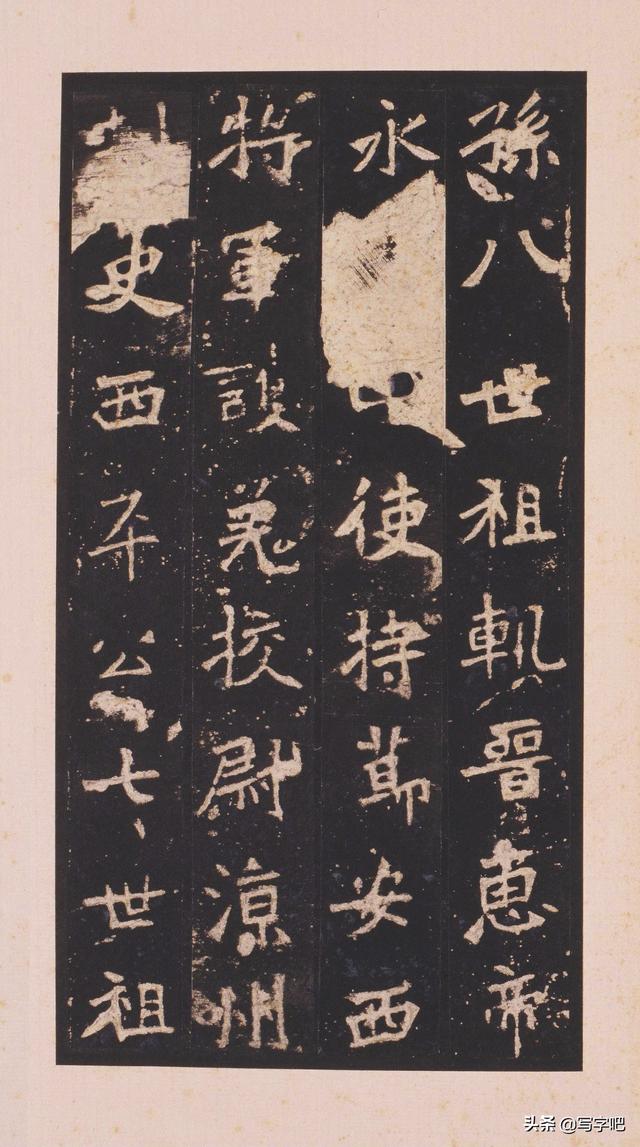 孫八世祖軌晉惠帝
永中使持節安西
將軍護羌挍尉涼州
史西平公七世祖
头条 @写字吧